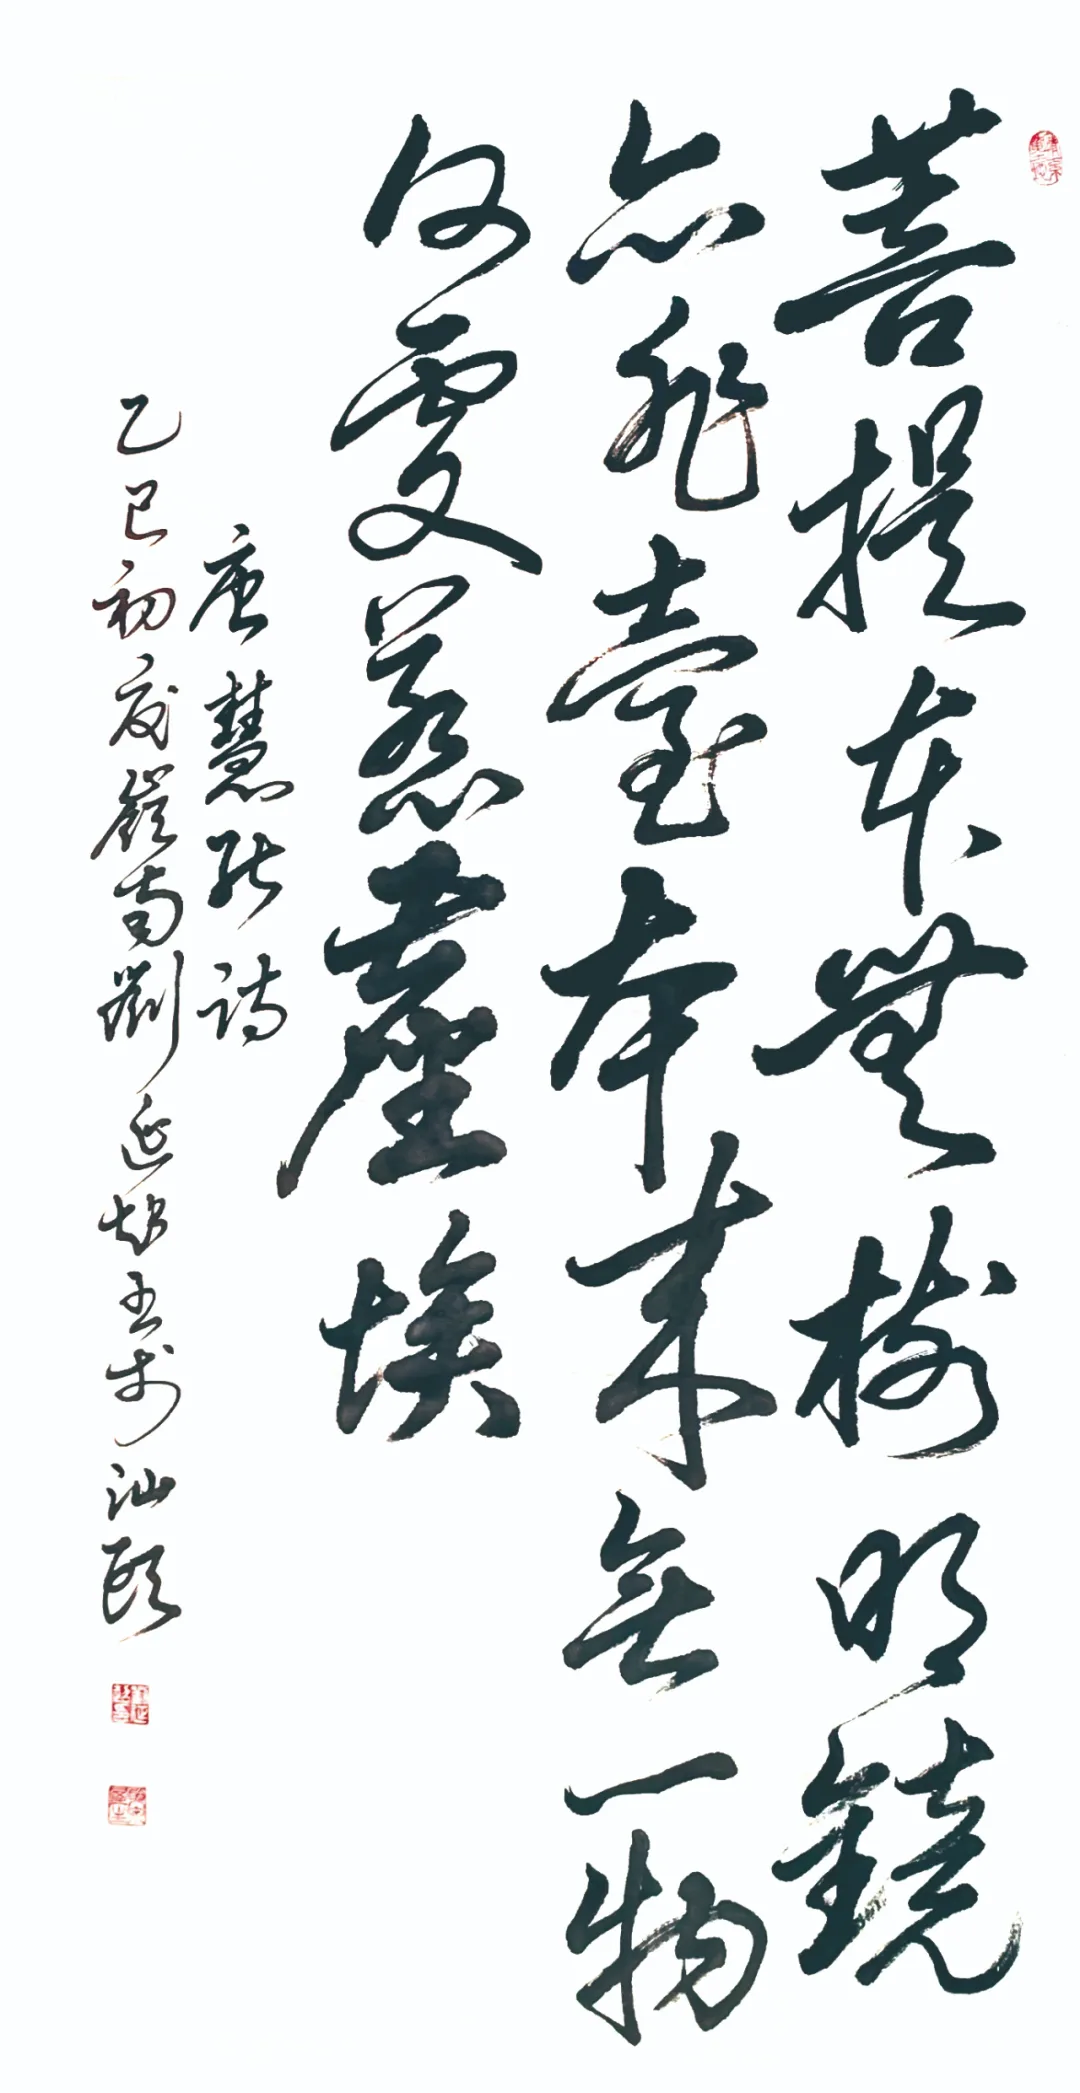 菩提本無樹明鏡
亦非臺本来無一物
何處惹塵埃
唐慧能詩
乙巳初夏嶺南劉延超書於汕頭